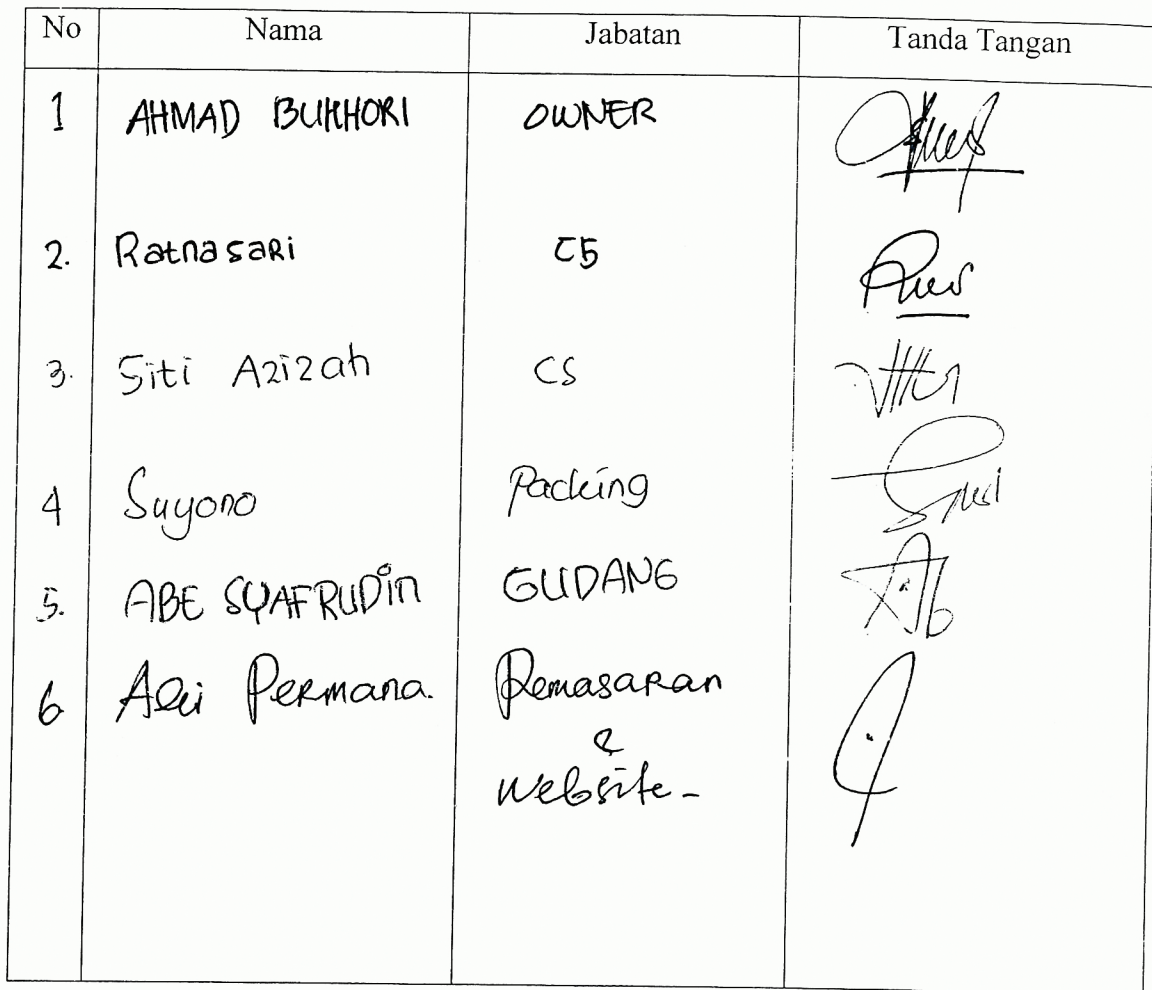 No Nama Jabatan Tanda Tangan
1 AHMAD BUKHORI OWNER
2. Ratnasari CS
3. Siti Azizah CS
4 Suyono Packing
5. ABE SYAFRUDin GUDANG
6 Permana. Pemasaran
&
Website -